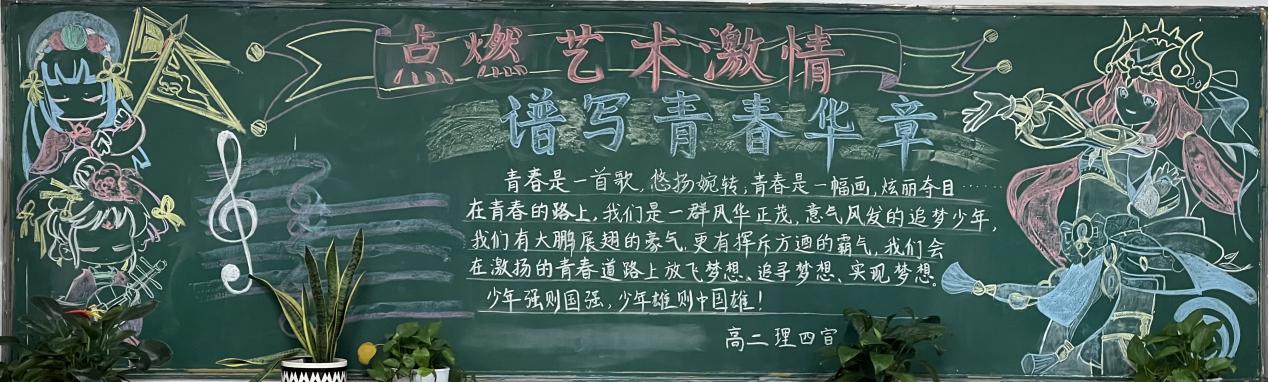 点燃艺术激情
谱写青春华章
青春是一首歌，悠扬婉转，青春是一幅画，炫丽夺目……
在青春的路上，我们是一群风华正茂，意气风发的追梦少年，
我们有大鹏展翅的豪气，更有挥斥方遒的霸气，我们会
在激扬的青春道路上放飞梦想、追寻梦想、实现梦想。
少年强则国强，少年雄则中国雄！
高二理四宣